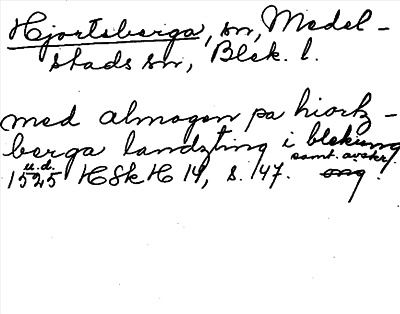 Hjortsberga, sn, Medel-
stads sn, Blek. l.
med almogen pa hiortz-
berga landzting i bleking
u.d. samt. avskr.
1525 HSkH 14, s. 147. orig.